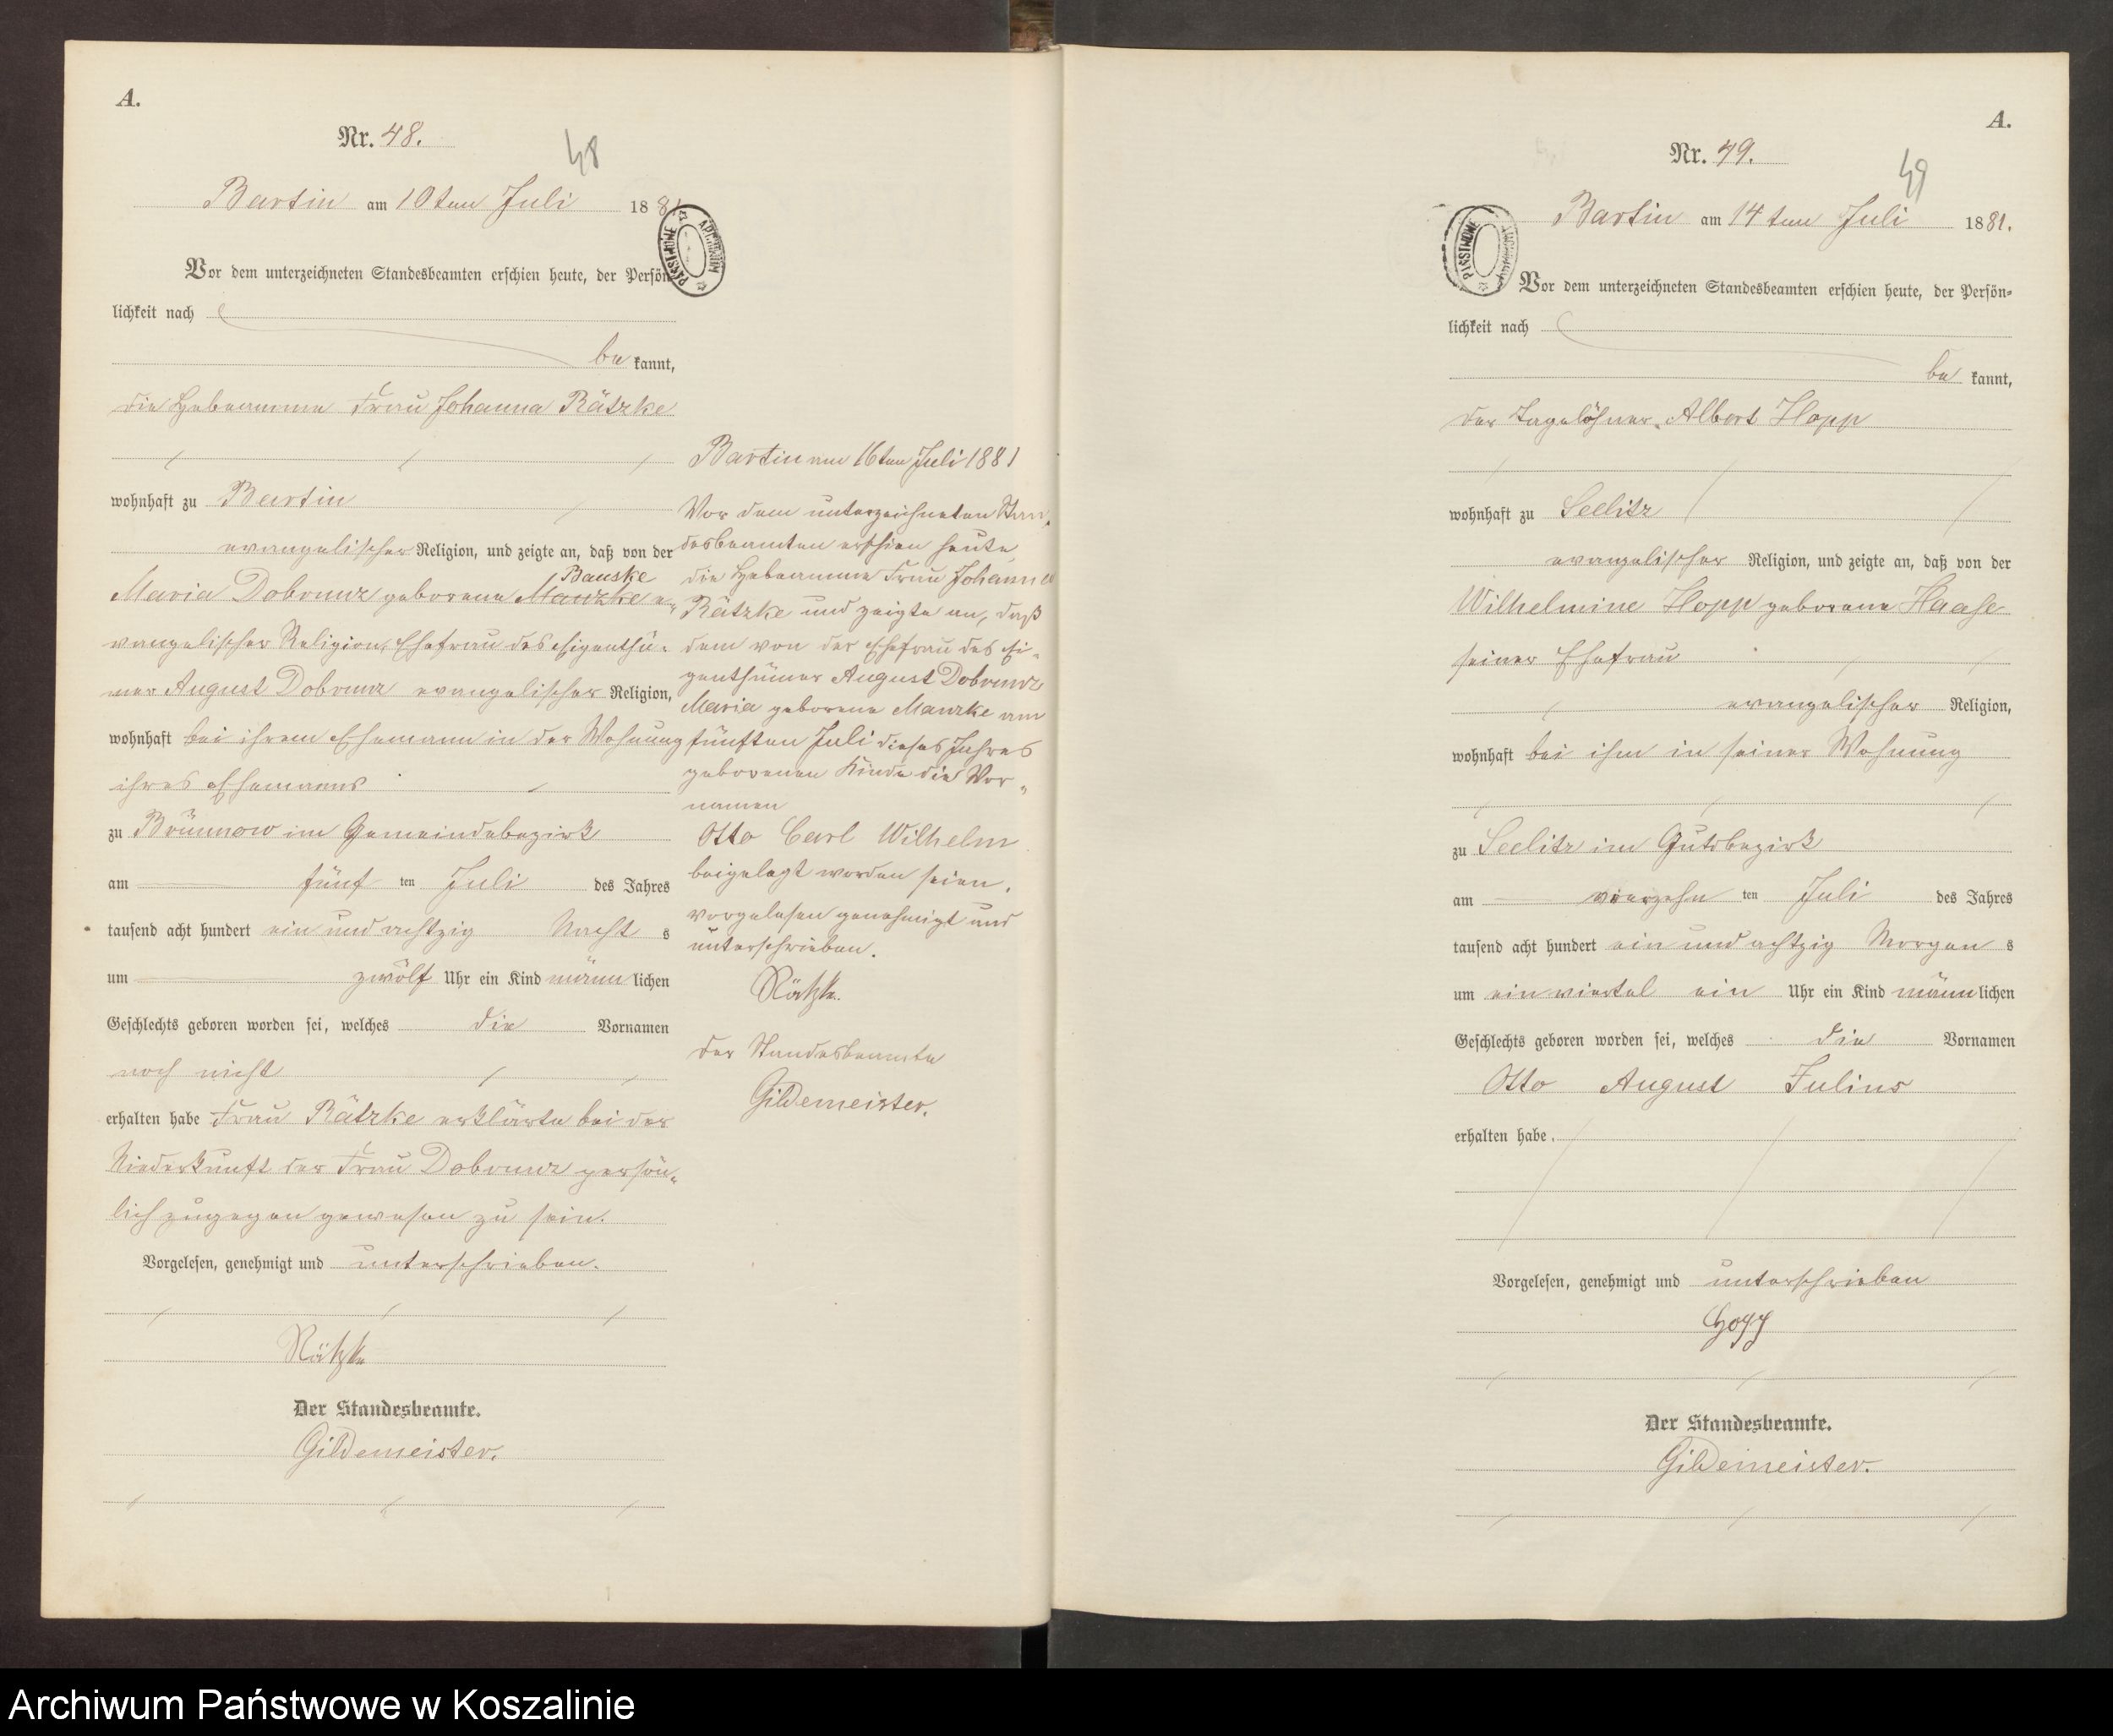 A.
Nr. 48.
48
Bartin am 10ten Juli 1881
PAŃSTWOWE ARCHIWUM
Vor dem unterzeichneten Standesbeamten erschien heute, der Persön-
lichkeit nach
be kannt,
die Hebeamme Frau Johanna Rätzke
wohnhaft zu Bartin
evangelischer Religion, und zeigte an, daß von der
Bauske
Maria Dobrunz geborene Manzke e-
vangelischer Religion, Ehefrau des Eigenthü-
mer August Dobrunz evangelischer Religion,
wohnhaft bei ihrem Ehemann in der Wohnung
ihres Ehemanns
zu Brünnow im Gemeindebezirk
am fünf ten Juli des Jahres
tausend acht hundert ein und achtzig Nacht s
um zwölf Uhr ein Kind männ lichen
Geschlechts geboren worden sei, welches die Vornamen
noch nicht
erhalten habe Frau Rätzke erklärte bei der
Niederkunft der Frau Dobrunz persön-
lich zugegen gewesen zu sein.
Vorgelesen, genehmigt und unterschrieben.
Rätzke
Der Standesbeamte.
Gildemeister.
Bartin am 16ten Juli 1881
Vor dem unterzeichneten Stan-
desbeamten erschien heute
die Hebeamme Frau Johanna
Rätzke und zeigte an, daß
dem von der Ehefrau des Ei-
genthümer August Dobrunz
Maria geborene Manzke am
fünften Juli dieses Jahres
geborenen Kinde die Vor-
namen
Otto Carl Wilhelm
beigelegt worden seien.
vorgelesen genehmigt und
unterschrieben.
Rätzke.
Der Standesbeamte
Gildemeister.
A.
Nr. 49.
49
Bartin am 14ten Juli 1881.
PAŃSTWOWE ARCHIWUM
Vor dem unterzeichneten Standesbeamten erschien heute, der Persön-
lichkeit nach
be kannt,
der Tagelöhner Albert Hopp
wohnhaft zu Seelitz
evangelischer Religion, und zeigte an, daß von der
Wilhelmine Hopp geborene Haase
seiner Ehefrau
evangelischer Religion,
wohnhaft bei ihm in seiner Wohnung
zu Seelitz im Gutsbezirk
am vierzehn ten Juli des Jahres
tausend acht hundert ein und achtzig Morgen s
um ein viertel ein Uhr ein Kind männ lichen
Geschlechts geboren worden sei, welches die Vornamen
Otto August Julius
erhalten habe.
Vorgelesen, genehmigt und unterschrieben
Hopp
Der Standesbeamte.
Gildemeister.
Archiwum Państwowe w Koszalinie